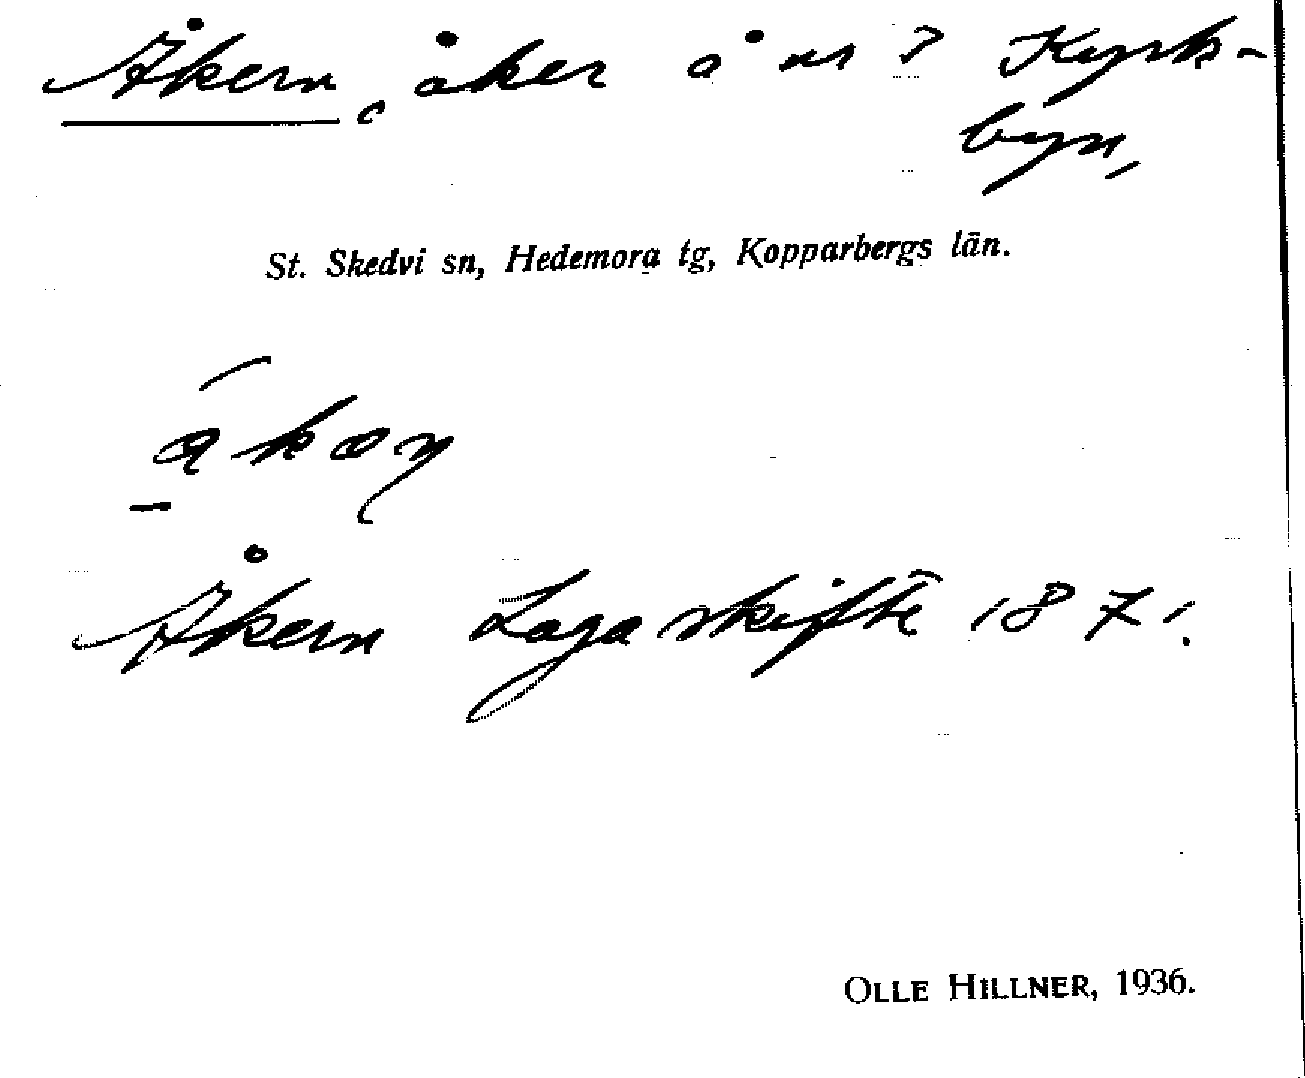 Åkern, åker å nr 7 Kyrk-
byn,
St. Skedvi sn, Hedemora tg, Kopparbergs län.
Åkern Laga skifte 1871.
OLLE HILLNER, 1936.